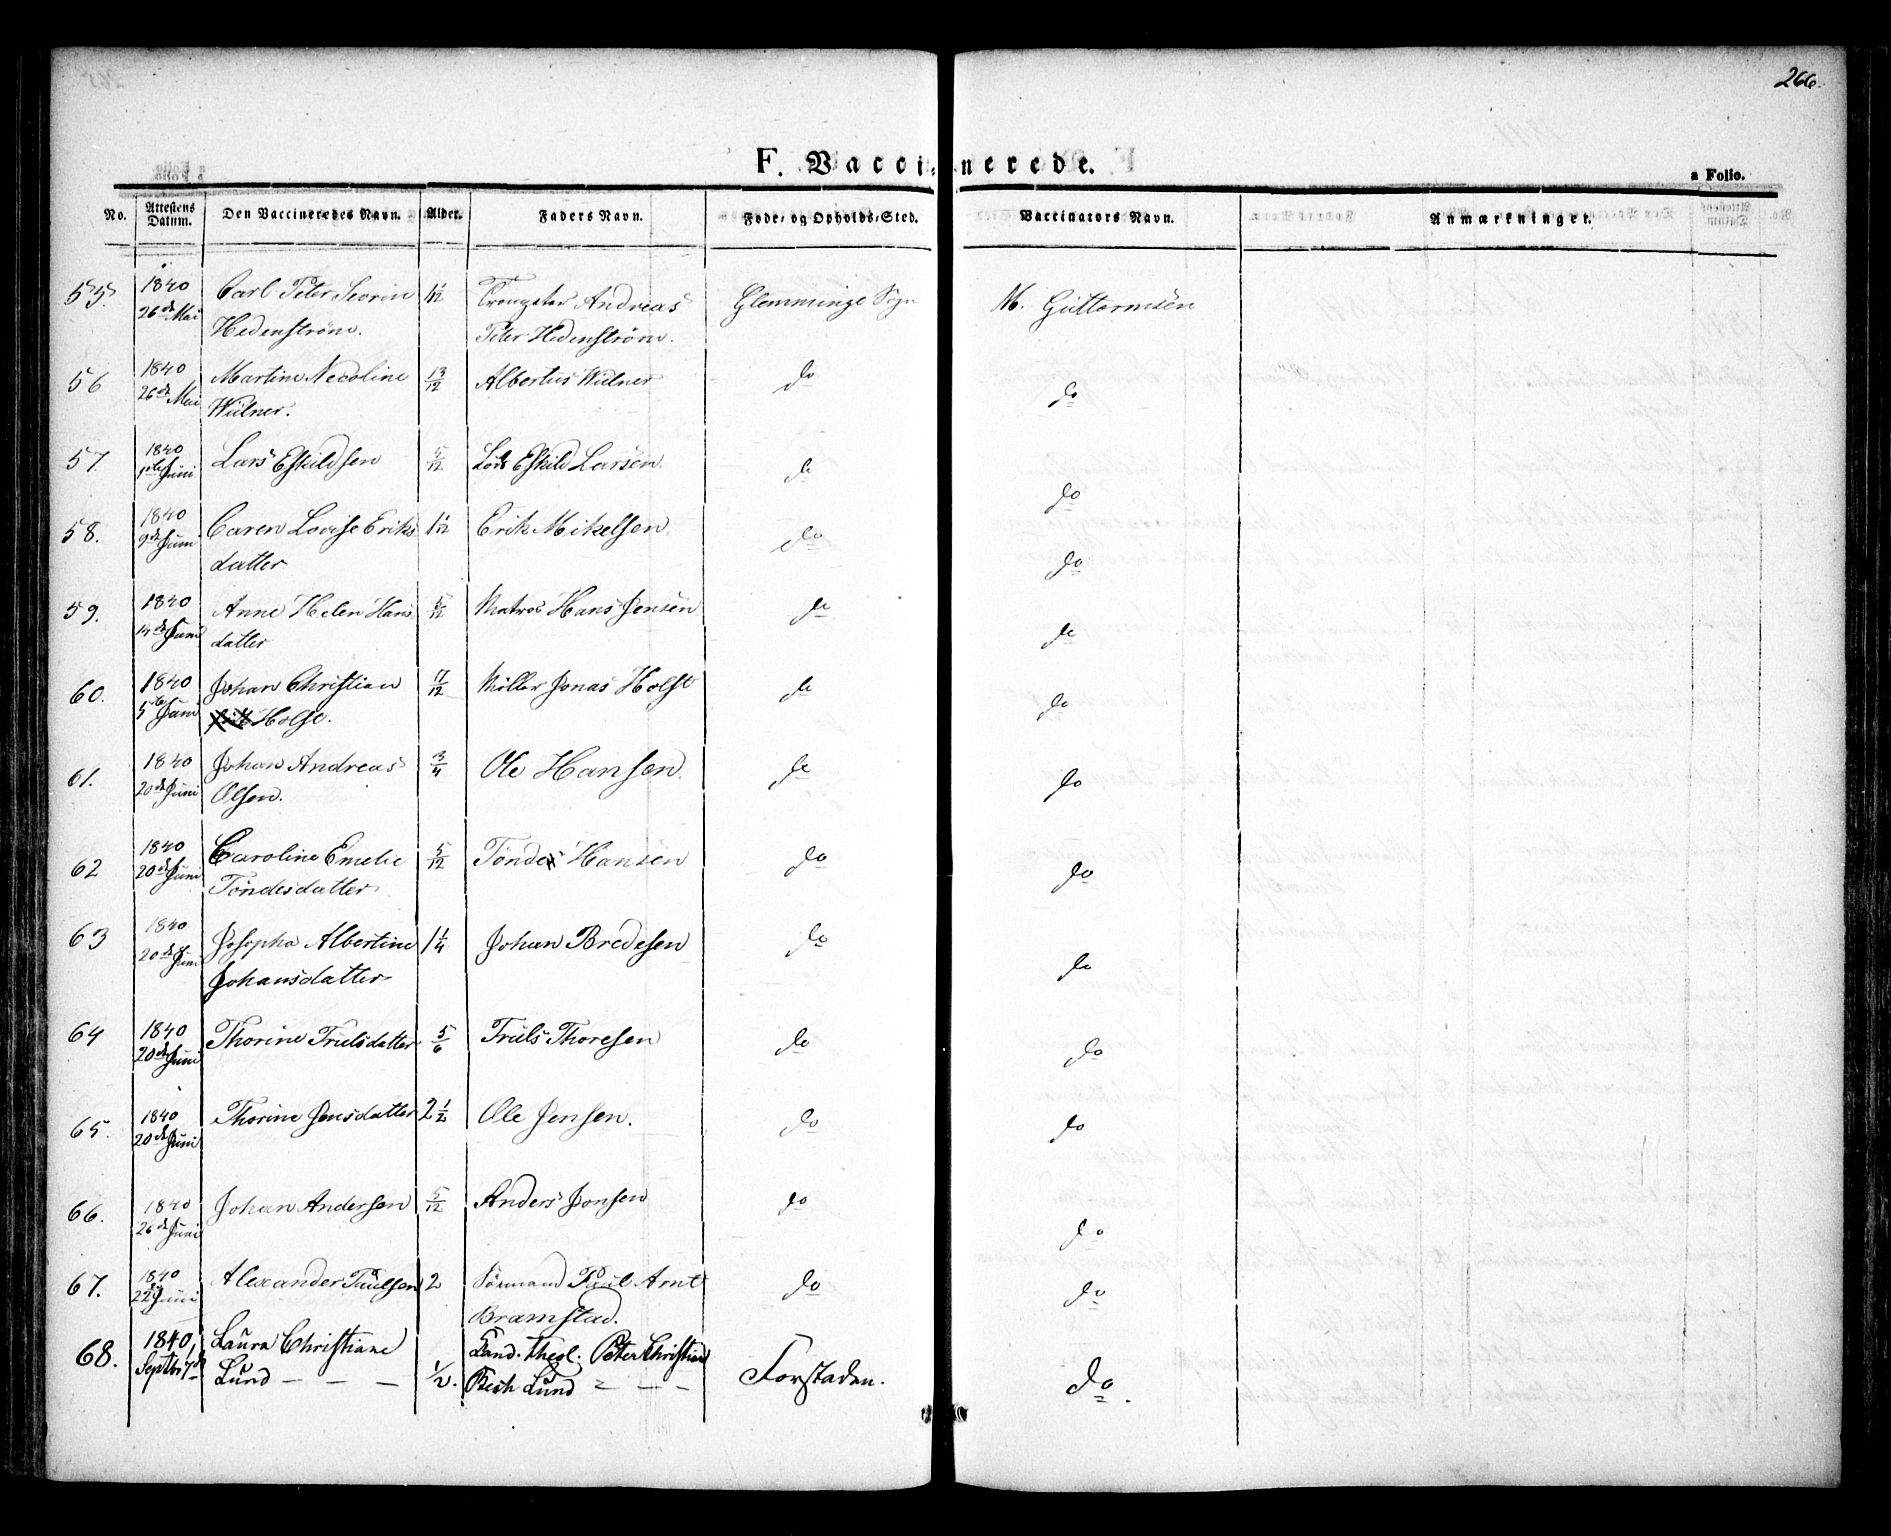 266.
F. Vaccinerede.
a Folio.
No. Attestens Datum. Den Vaccineredes Navn. Alder. Faders Navn. Føde- og Opholds-Sted. Vaccinators Navn. Anmærkninger.
55. 1840 Carl Peter Severin 1 1/12 Andreas Glemminge Sogn M. Guttormsen
26de Mai Hedenstrøm. Peter Hedenstrøm.
56 1840 Martine Necoline 13/12 Albertus Wülner do do
26de Mai Wülner.
57. 1840 Lars Eskildsen 5/12 Lods Eskild Larsen. do do
1ste Juni
58. 1840 Caren Lovise Eriks 1 1/12 Erik Mikelsen. do do
9de Juni datter
59. 1840 Anne Helen Hans 5/12 Matros Hans Jensen do do
14de Juni datter
60. 1840 Johan Christian 17/12 Møller Jonas Holst do do
5te Juni Holst.
61. 1840 Johan Andreas 3/4 Ole Hansen. do do
20de Juni Olsen.
62 1840 Caroline Emelie 5/12 Tønder Hansen do do
20de Juni Tøndesdatter
63 1840 Josepha Albertine 1 1/4 Johan Bredesen do do
20de Juni Johansdatter
64 1840 Thorine Trulsdatter 5/6 Truls Thoresen do do
20de Juni
65. 1840 Thorine Jensdatter 2 1/2 Ole Jensen. do do
20de Juni
66. 1840 Johan Andersen 5/12 Anders Jonsen do do
26de Juni
67. 1840 Alexander Paulsen 2 Sømand Paul Arnt do do
22de Juni Bramstad.
68. 1840, Laura Christiane 1/2. Cand. Theol. Peter Christian Forstaden. do.
Septbr 7de Lund - - - Bech Lund - - -